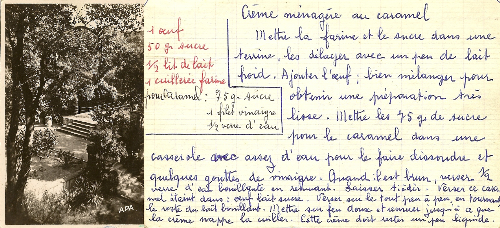 Crème ménagère au caramel
1 œuf
50 gr sucre
1/2 lit de lait
1 cuillerée farine
pour caramel : 75 gr sucre
1 filet vinaigre
1/2 verre d'eau
Mettre la farine et le sucre dans une
terrine, les délayer avec un peu de lait
froid. Ajouter l'œuf ; bien mélanger pour
obtenir une préparation très
lisse. Mettre les 75 gr de sucre
pour le caramel dans une
casserole avec assez d'eau pour le faire dissoudre et
quelques gouttes de vinaigre. Quand l'est brun, verser 1/2
verre d'eau bouillante en remuant. Laisser tiédir. Verser ce cara
mel éteint dans : œuf lait sucre. Verser sur le tout peu à peu, en tournant
le reste du lait bouillant. Mettre sur feu doux et remuer jusqu'à ce que
la crème nappe la cuiller. Cette crème doit rester un peu liquide.
APA